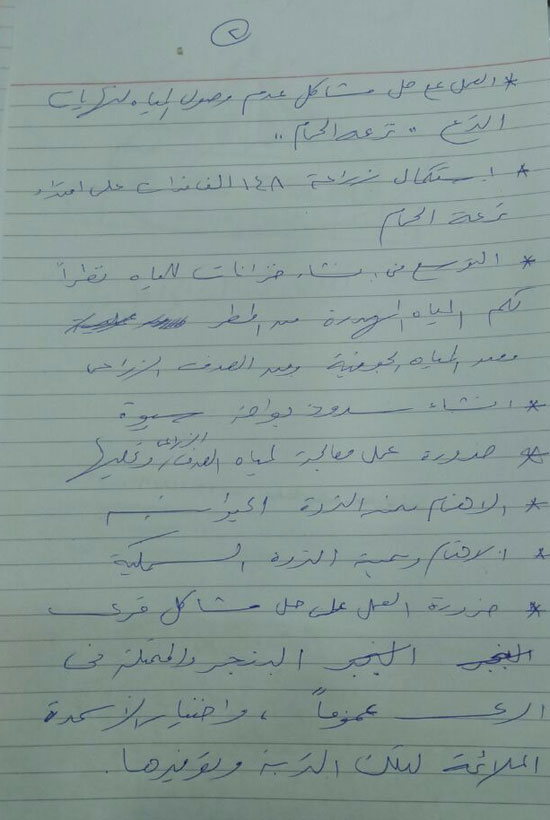 ٢
* العمل على حل مشاكل عدم وصول المياه لنهايات
الترع " ترعة الحمام "
* استكمال زراعة ١٤٨ الف فدان على امتداد
ترعة الحمام
* التوسع فى إنشاء خزانات للمياه نظراً
لكم المياه المهدرة من المطر
ومن المياه الجوفية ومن الصرف الزراعى
* انشاء سدود بواحة سيوة
* ضرورة عمل معالجة لمياه الصرف الزراعى وتحليتها
* الاهتمام بتنمية الثروة الحيوانية
* الاهتمام وتنمية الثروة السمكية
* ضرورة العمل على حل مشاكل قرى
البنجر والمتمثلة فى
الرى عموماً ، واختيار الأسمدة
الملائمة لتلك التربة وتوفيرها .